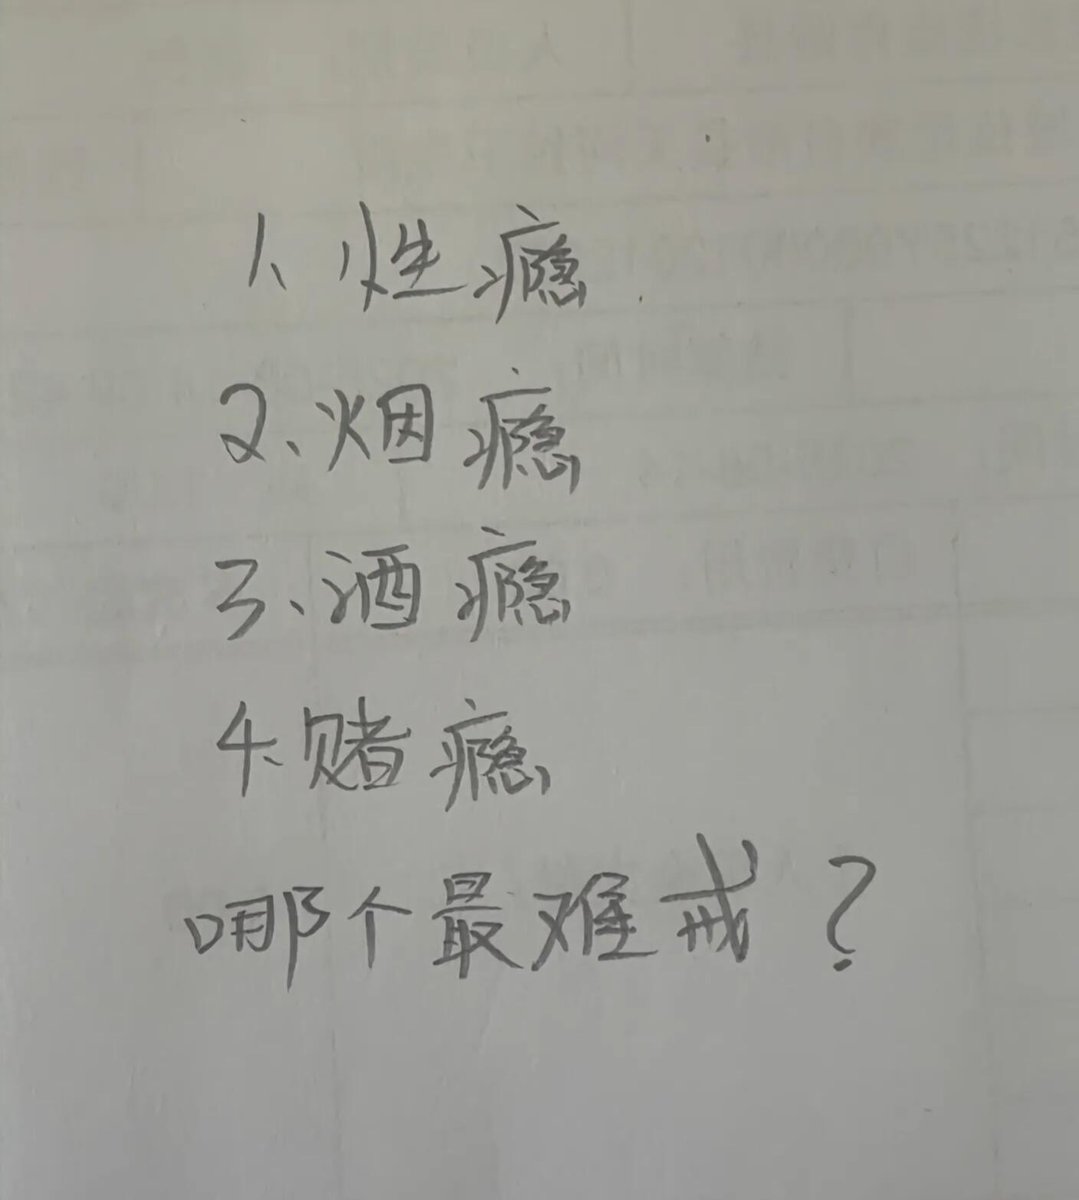 1、性瘾
2、烟瘾
3、酒瘾
4、赌瘾
哪个最难戒?